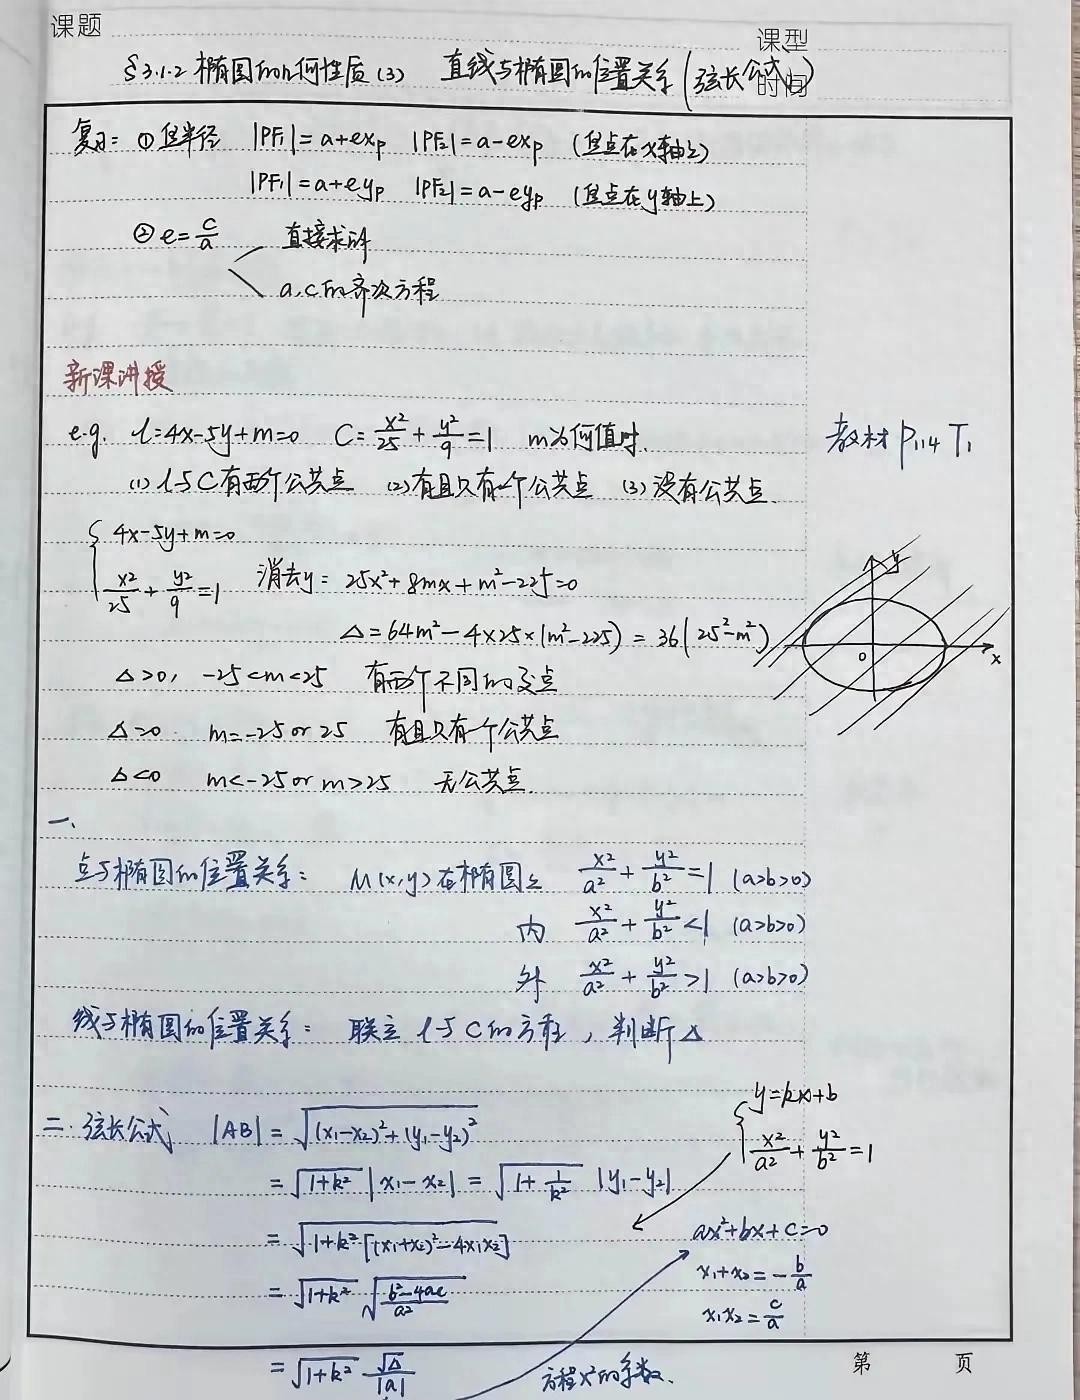 课题
课型
§3.1.2 椭圆的几何性质(3) 直线与椭圆的位置关系(弦长公式)
时间
复习: ①焦半径 |PF₁|=a+exₚ |PF₂|=a-exₚ (焦点在x轴上)
|PF₁|=a+eyₚ |PF₂|=a-eyₚ (焦点在y轴上)
②e=c/a 直接求解
a,c的齐次方程
新课讲授
e.g. l:4x-5y+m=0 C: x²/25 + y²/9 =1 m为何值时. 教材P₁₁₄ T₁
(1) l与C有两个公共点 (2)有且只有一个公共点 (3)没有公共点.
{ 4x-5y+m=0
x²/25 + y²/9 =1 消去y: 25x²+8mx+m²-225=0
y
△=64m²-4×25×(m²-225) = 36(25²-m²)
0 x
△>0, -25<m<25 有两个不同的交点
△=0. m=-25 or 25 有且只有一个公共点
△<0 m<-25 or m>25 无公共点.
一、
点与椭圆的位置关系: M(x,y)在椭圆上 x²/a² + y²/b² =1 (a>b>0)
内 x²/a² + y²/b² <1 (a>b>0)
外 x²/a² + y²/b² >1 (a>b>0)
线与椭圆的位置关系: 联立 l与C的方程, 判断△
{ y=kx+b
x²/a² + y²/b² =1
二. 弦长公式 |AB| = √((x₁-x₂)²+(y₁-y₂)²)
= √(1+k²) |x₁-x₂| = √(1+1/k²) |y₁-y₂|
= √(1+k²[(x₁+x₂)²-4x₁x₂]) ax²+bx+c=0
x₁+x₂=-b/a
= √(1+k²) √((b²-4ac)/a²)
x₁x₂=c/a
= √(1+k²) √△/|a|
方程x²的系数.
第 页